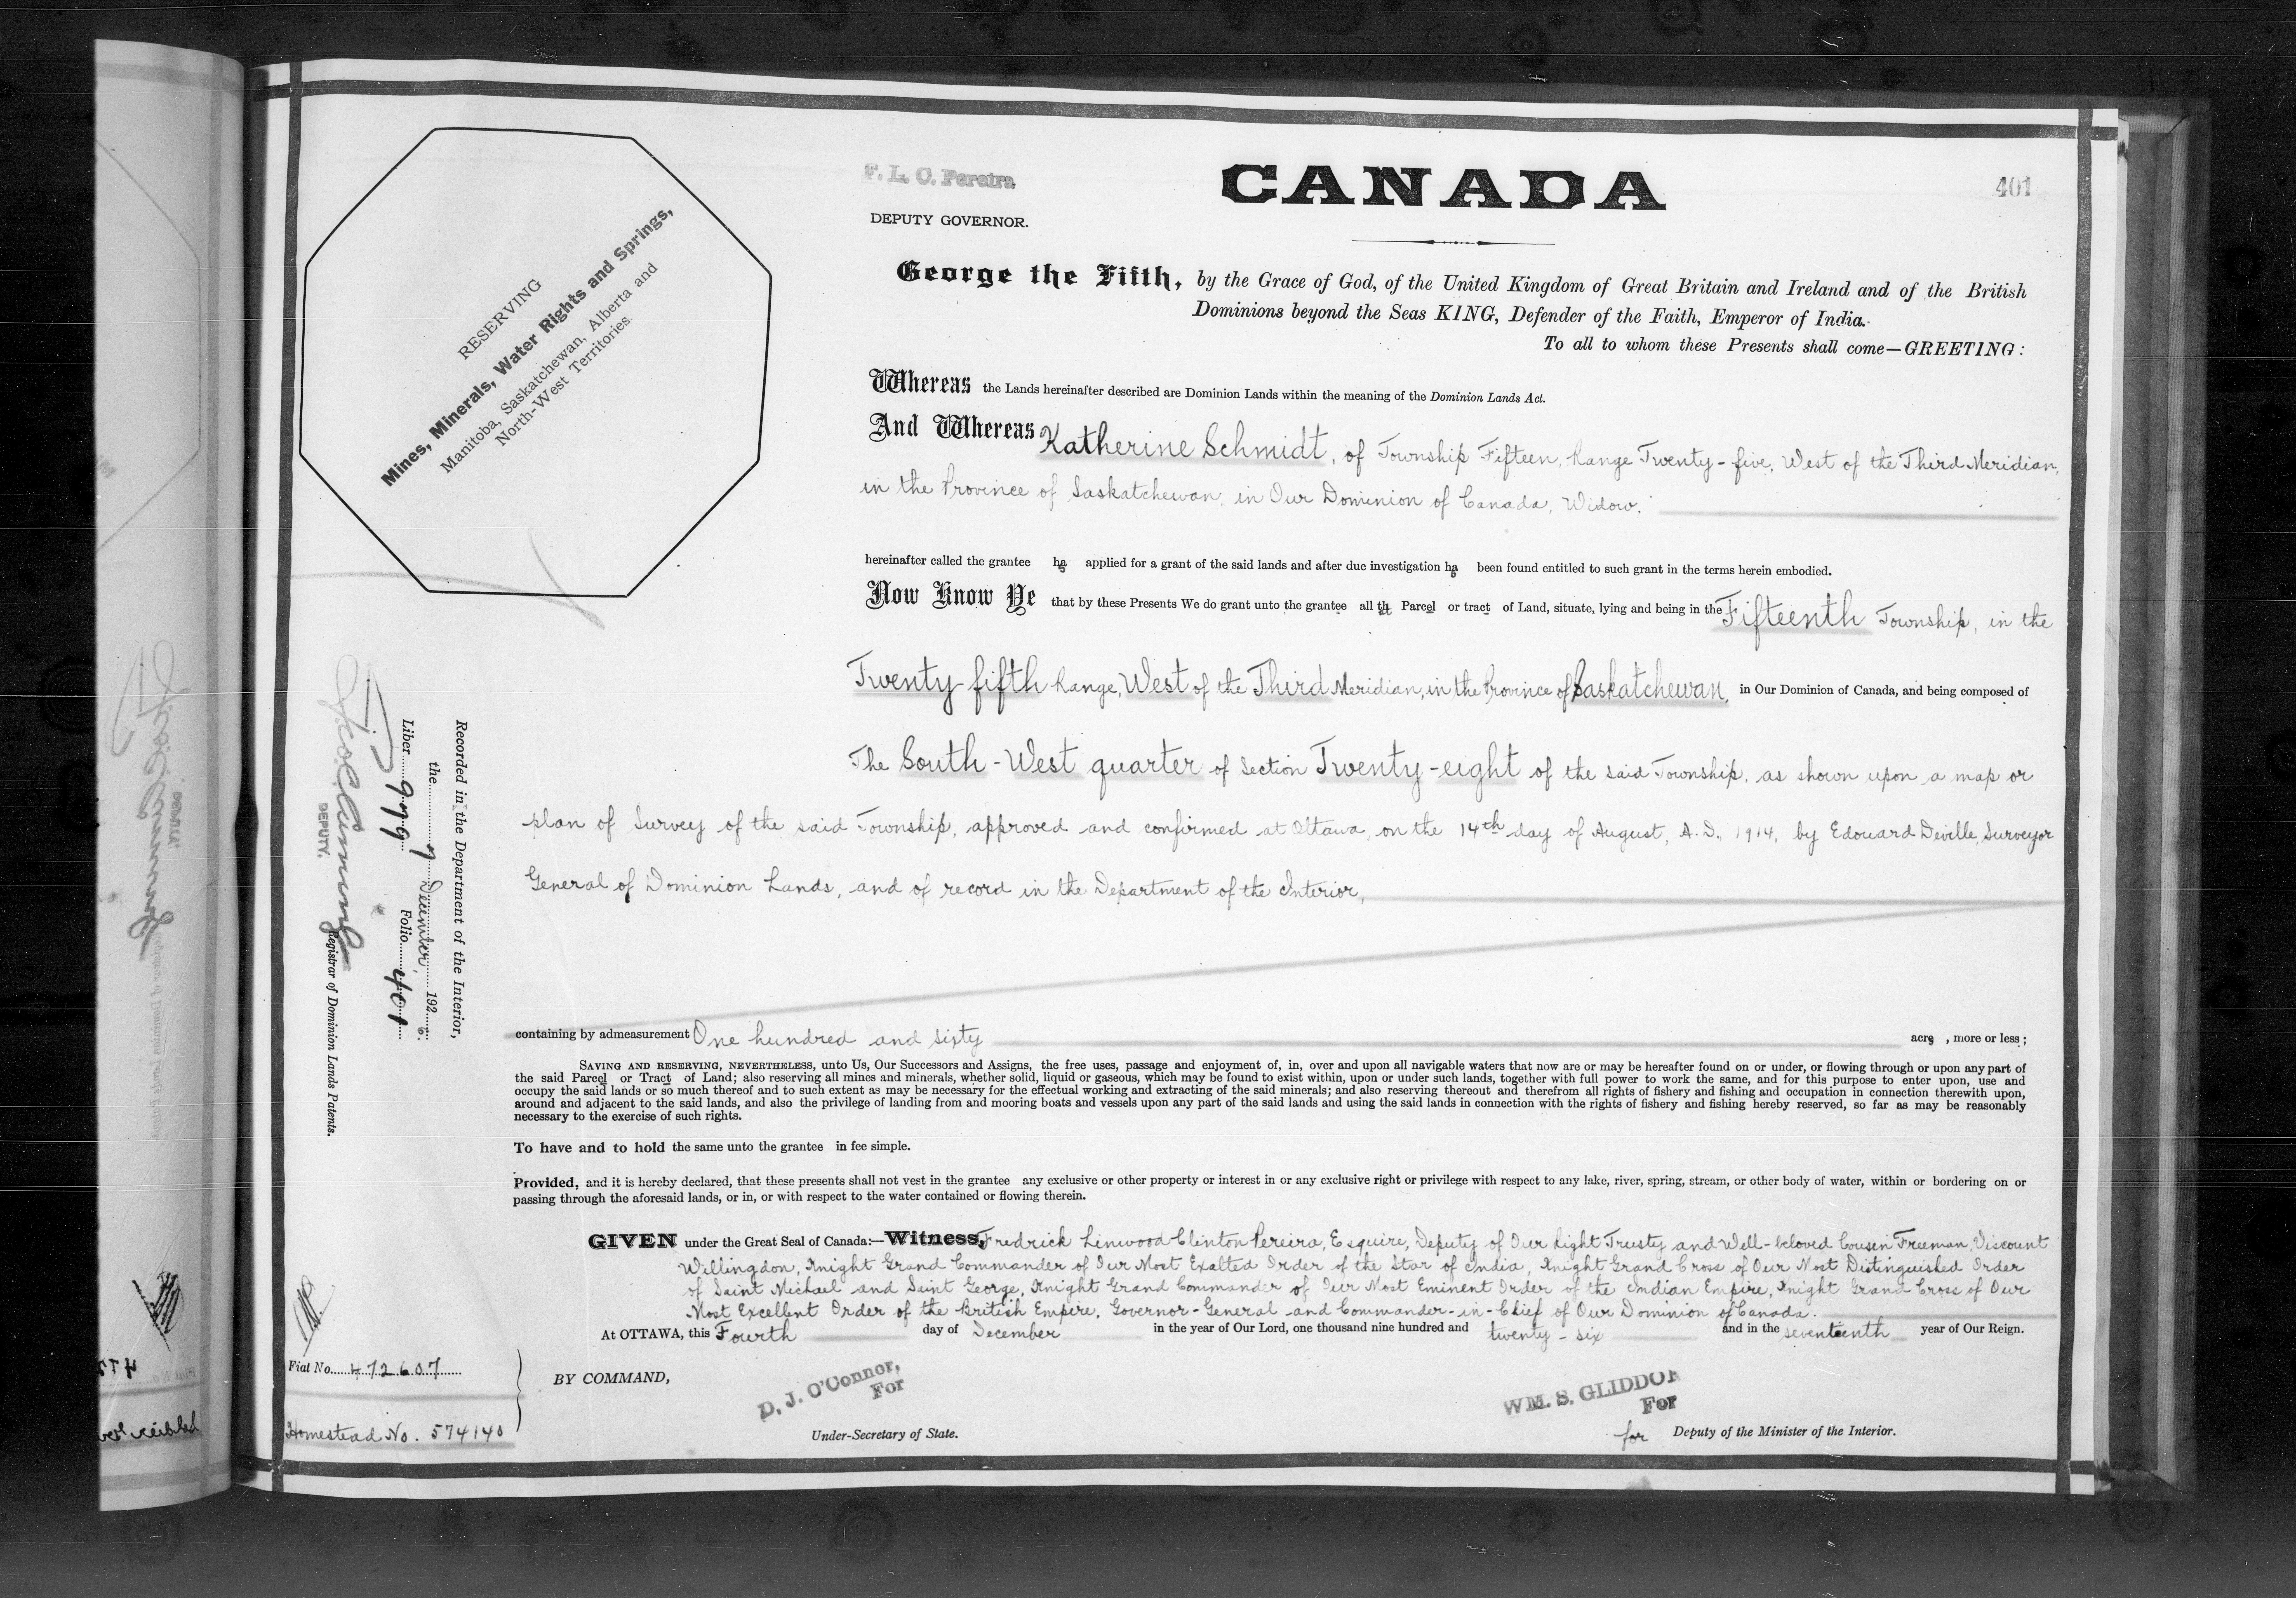 F. L. C. Pereira
DEPUTY GOVERNOR.
CANADA
401
RESERVING
Mines, Minerals, Water Rights and Springs,
Manitoba, Saskatchewan, Alberta and
North-West Territories.
George the Fifth, by the Grace of God, of the United Kingdom of Great Britain and Ireland and of the British
Dominions beyond the Seas KING, Defender of the Faith, Emperor of India.
To all to whom these Presents shall come—GREETING:
Whereas the Lands hereinafter described are Dominion Lands within the meaning of the Dominion Lands Act.
And Whereas Katherine Schmidt, of Township Fifteen, Range Twenty-five, West of the Third Meridian,
in the Province of Saskatchewan, in Our Dominion of Canada, Widow.
hereinafter called the grantee has applied for a grant of the said lands and after due investigation has been found entitled to such grant in the terms herein embodied.
Now Know Ye that by these Presents We do grant unto the grantee all th Parcel or tract of Land, situate, lying and being in the Fifteenth Township, in the
Twenty-fifth Range, West of the Third Meridian, in the Province of Saskatchewan, in Our Dominion of Canada, and being composed of
The South-West quarter of Section Twenty-eight of the said Township, as shown upon a map or
plan of Survey of the said Township, approved and confirmed at Ottawa, on the 14th day of August, A.D. 1914, by Edouard Deville, Surveyor
General of Dominion Lands, and of record in the Department of the Interior,
containing by admeasurement One hundred and sixty acres, more or less;
SAVING AND RESERVING, NEVERTHELESS, unto Us, Our Successors and Assigns, the free uses, passage and enjoyment of, in, over and upon all navigable waters that now are or may be hereafter found on or under, or flowing through or upon any part of
the said Parcel or Tract of Land; also reserving all mines and minerals, whether solid, liquid or gaseous, which may be found to exist within, upon or under such lands, together with full power to work the same, and for this purpose to enter upon, use and
occupy the said lands or so much thereof and to such extent as may be necessary for the effectual working and extracting of the said minerals; and also reserving thereout and therefrom all rights of fishery and fishing and occupation in connection therewith upon,
around and adjacent to the said lands, and also the privilege of landing from and mooring boats and vessels upon any part of the said lands and using the said lands in connection with the rights of fishery and fishing hereby reserved, so far as may be reasonably
necessary to the exercise of such rights.
To have and to hold the same unto the grantee in fee simple.
Provided, and it is hereby declared, that these presents shall not vest in the grantee any exclusive or other property or interest in or any exclusive right or privilege with respect to any lake, river, spring, stream, or other body of water, within or bordering on or
passing through the aforesaid lands, or in, or with respect to the water contained or flowing therein.
GIVEN under the Great Seal of Canada:—Witness, Fredrick Linwood Clinton Pereira, Esquire, Deputy of Our Right Trusty and Well-beloved Cousin Freeman, Viscount
Willingdon, Knight Grand Commander of Our Most Exalted Order of the Star of India, Knight Grand Cross of Our Most Distinguished Order
of Saint Michael and Saint George, Knight Grand Commander of Our Most Eminent Order of the Indian Empire, Knight Grand Cross of Our
Most Excellent Order of the British Empire, Governor-General and Commander-in-Chief of Our Dominion of Canada.
At OTTAWA, this Fourth day of December in the year of Our Lord, one thousand nine hundred and twenty-six and in the seventeenth year of Our Reign.
BY COMMAND,
D. J. O'Connor,
For
Under-Secretary of State.
WM. S. GLIDDON
For
for Deputy of the Minister of the Interior.
Recorded in the Department of the Interior,
the 7 December, 1926.
Liber 979 Folio 401
DEPUTY. Registrar of Dominion Lands Patents.
Fiat No. 472607
Homestead No. 574140